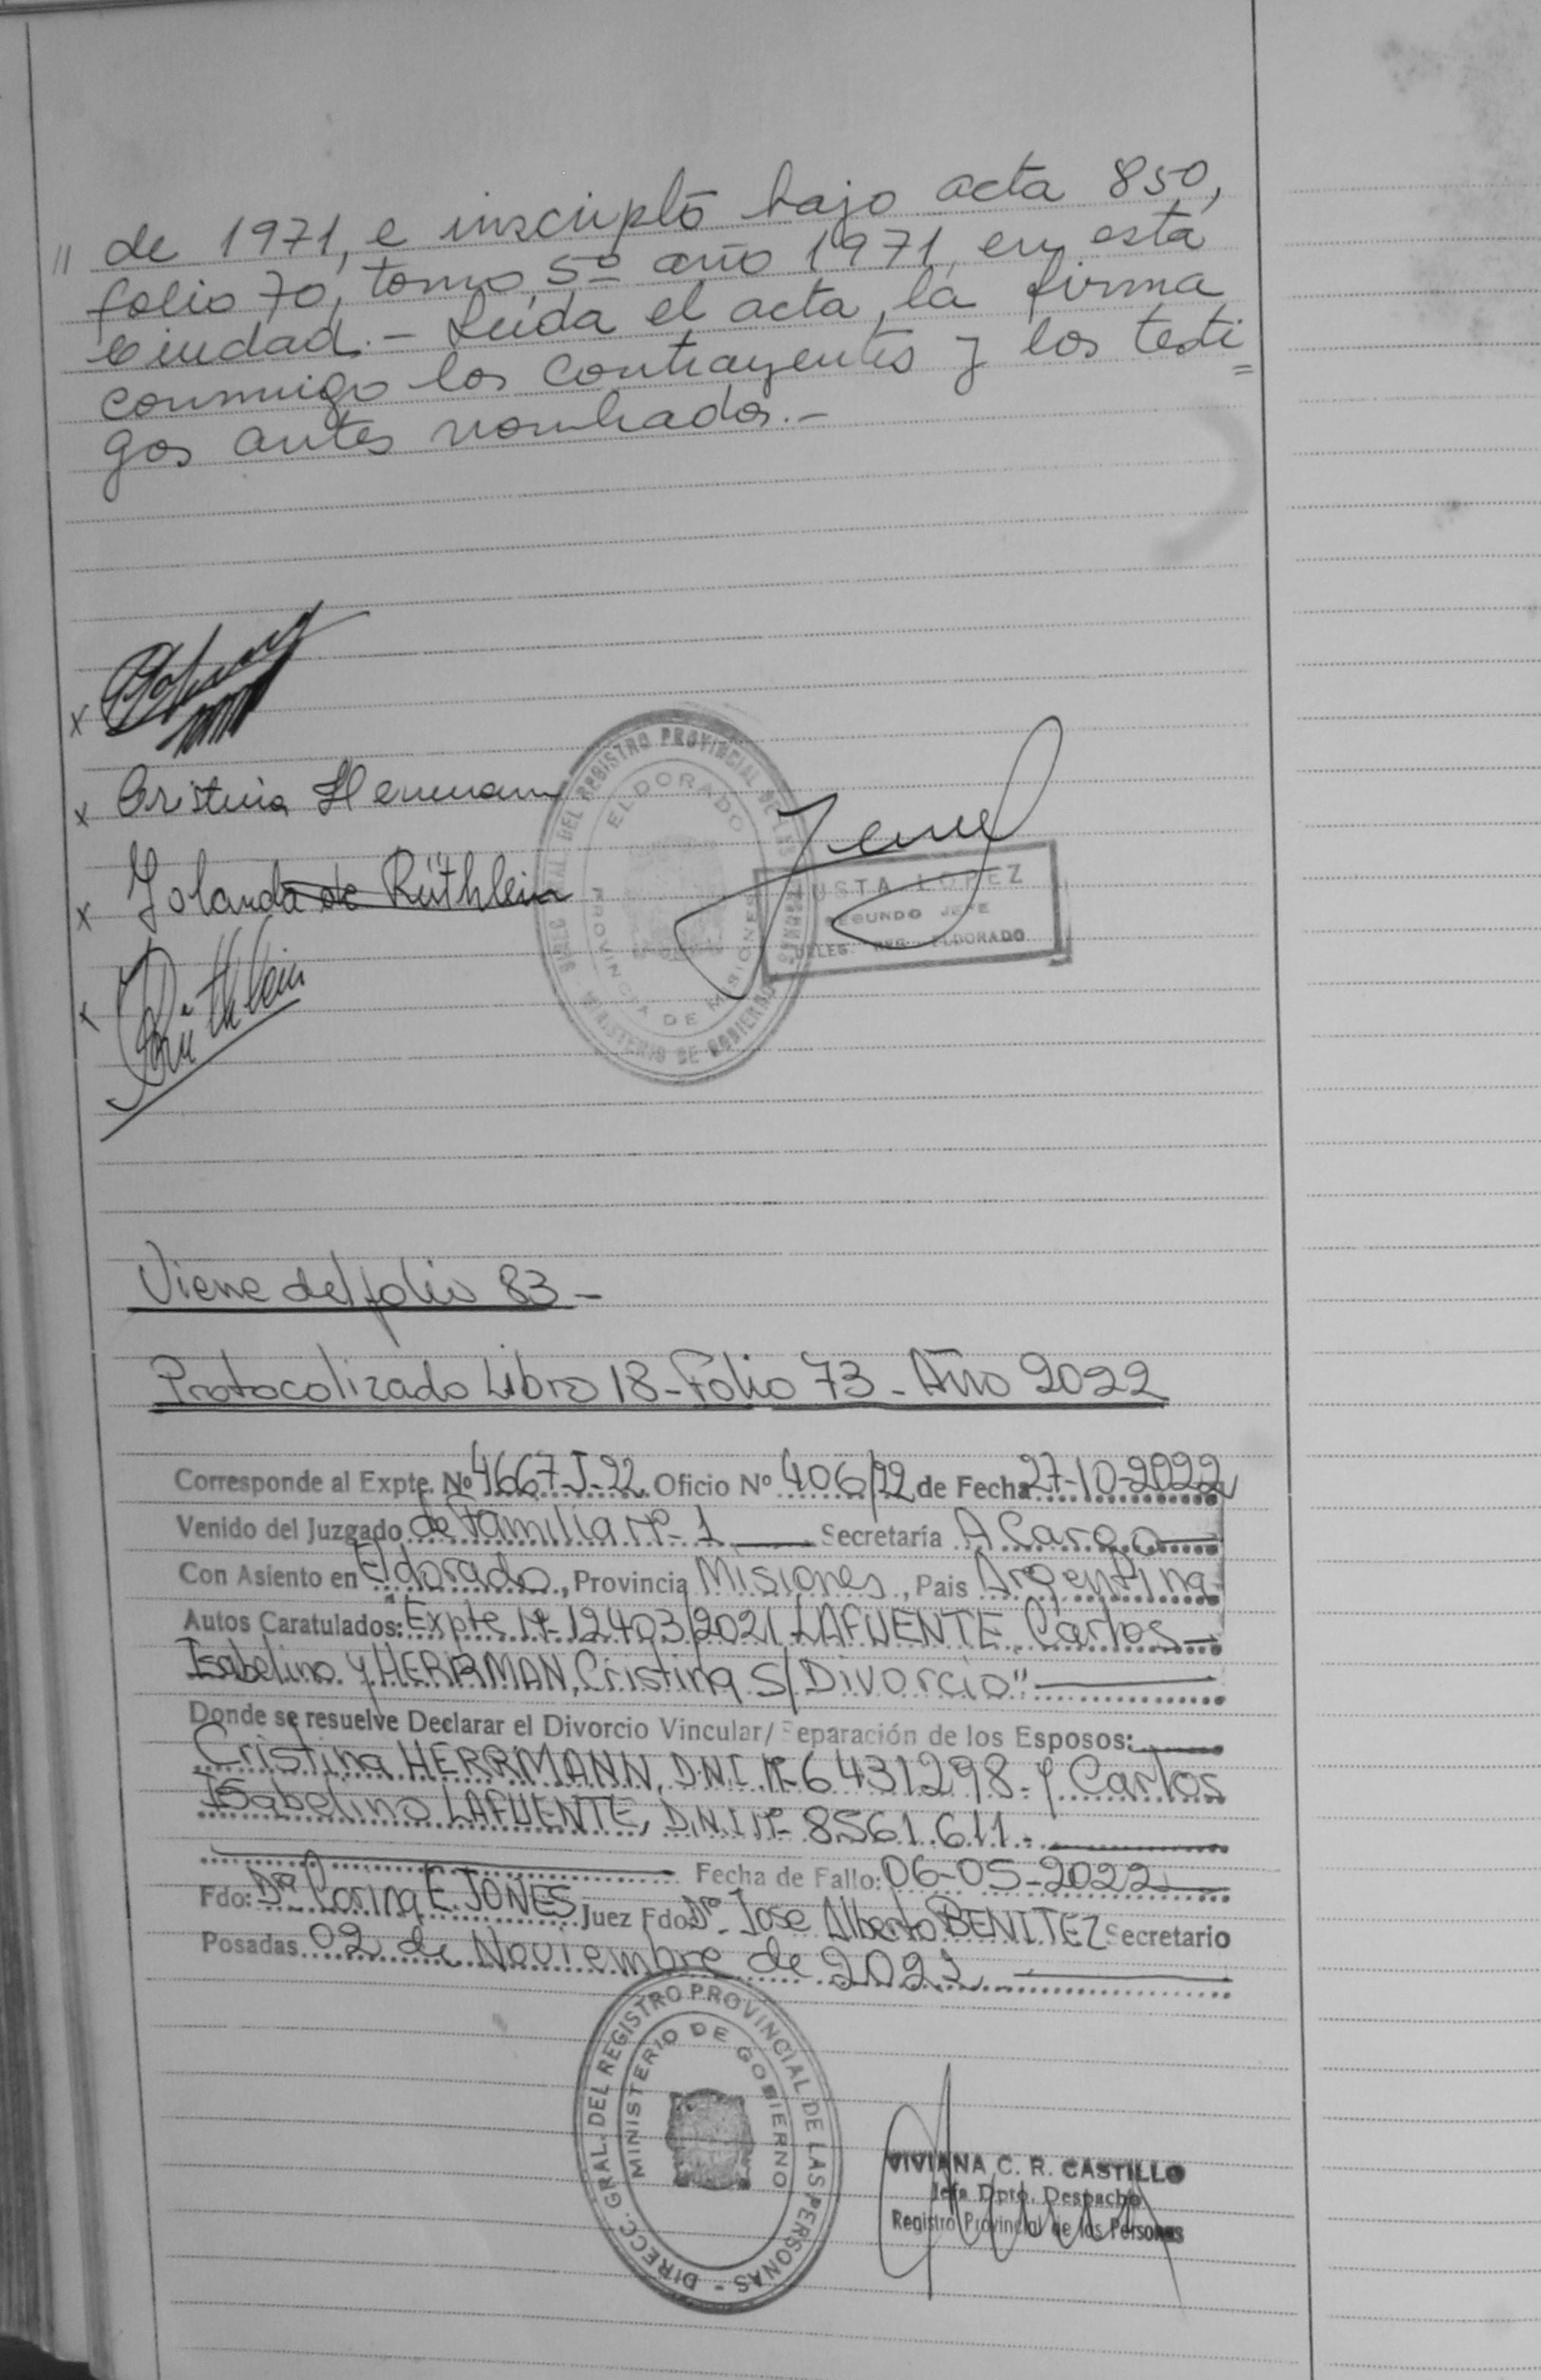 " de 1971, e inscripto bajo acta 850,
folio 70, tomo 5º año 1971, en esta
ciudad.- Leída el acta, la firma
conmigo los contrayentes y los testi=
gos antes nombrados.-
x
x Cristina Hermann
x Yolanda de Rüthlein
x Rüthlein
DIREC. GRAL. DEL REGISTRO PROVINCIAL DE LAS PERSONAS
MINISTERIO DE GOBIERNO
ELDORADO
PROVINCIA DE MISIONES
JUSTA LOPEZ
SEGUNDO JEFE
DELEG. REG. ELDORADO
Viene del folio 83-
Protocolizado Libro 18-Folio 73-Año 2022
Corresponde al Expte. Nº 4667-J-22 Oficio Nº 406/22 de Fecha 27-10-2022
Venido del Juzgado de Familia Nº 1 Secretaría A Cargo
Con Asiento en Eldorado, Provincia Misiones, Pais Argentina
Autos Caratulados: "Expte Nº 12403/2021 LAFUENTE, Carlos
Isabelino y HERRMAN, Cristina S/Divorcio"
Donde se resuelve Declarar el Divorcio Vincular/Separación de los Esposos:
Cristina HERRMANN, D.N.I. Nº 6431298- y Carlos
Isabelino LAFUENTE, D.N.I Nº 8561.611-
Fecha de Fallo: 06-05-2022
Fdo: Dra Corina E. JONES Juez Fdo: Dr. Jose Alberto BENITEZ Secretario
Posadas 02 de Noviembre de 2022
DIRECC. GRAL. DEL REGISTRO PROVINCIAL DE LAS PERSONAS -
MINISTERIO DE GOBIERNO
VIVIANA C. R. CASTILLO
Jefa Dpto. Despacho
Registro Provincial de las Personas